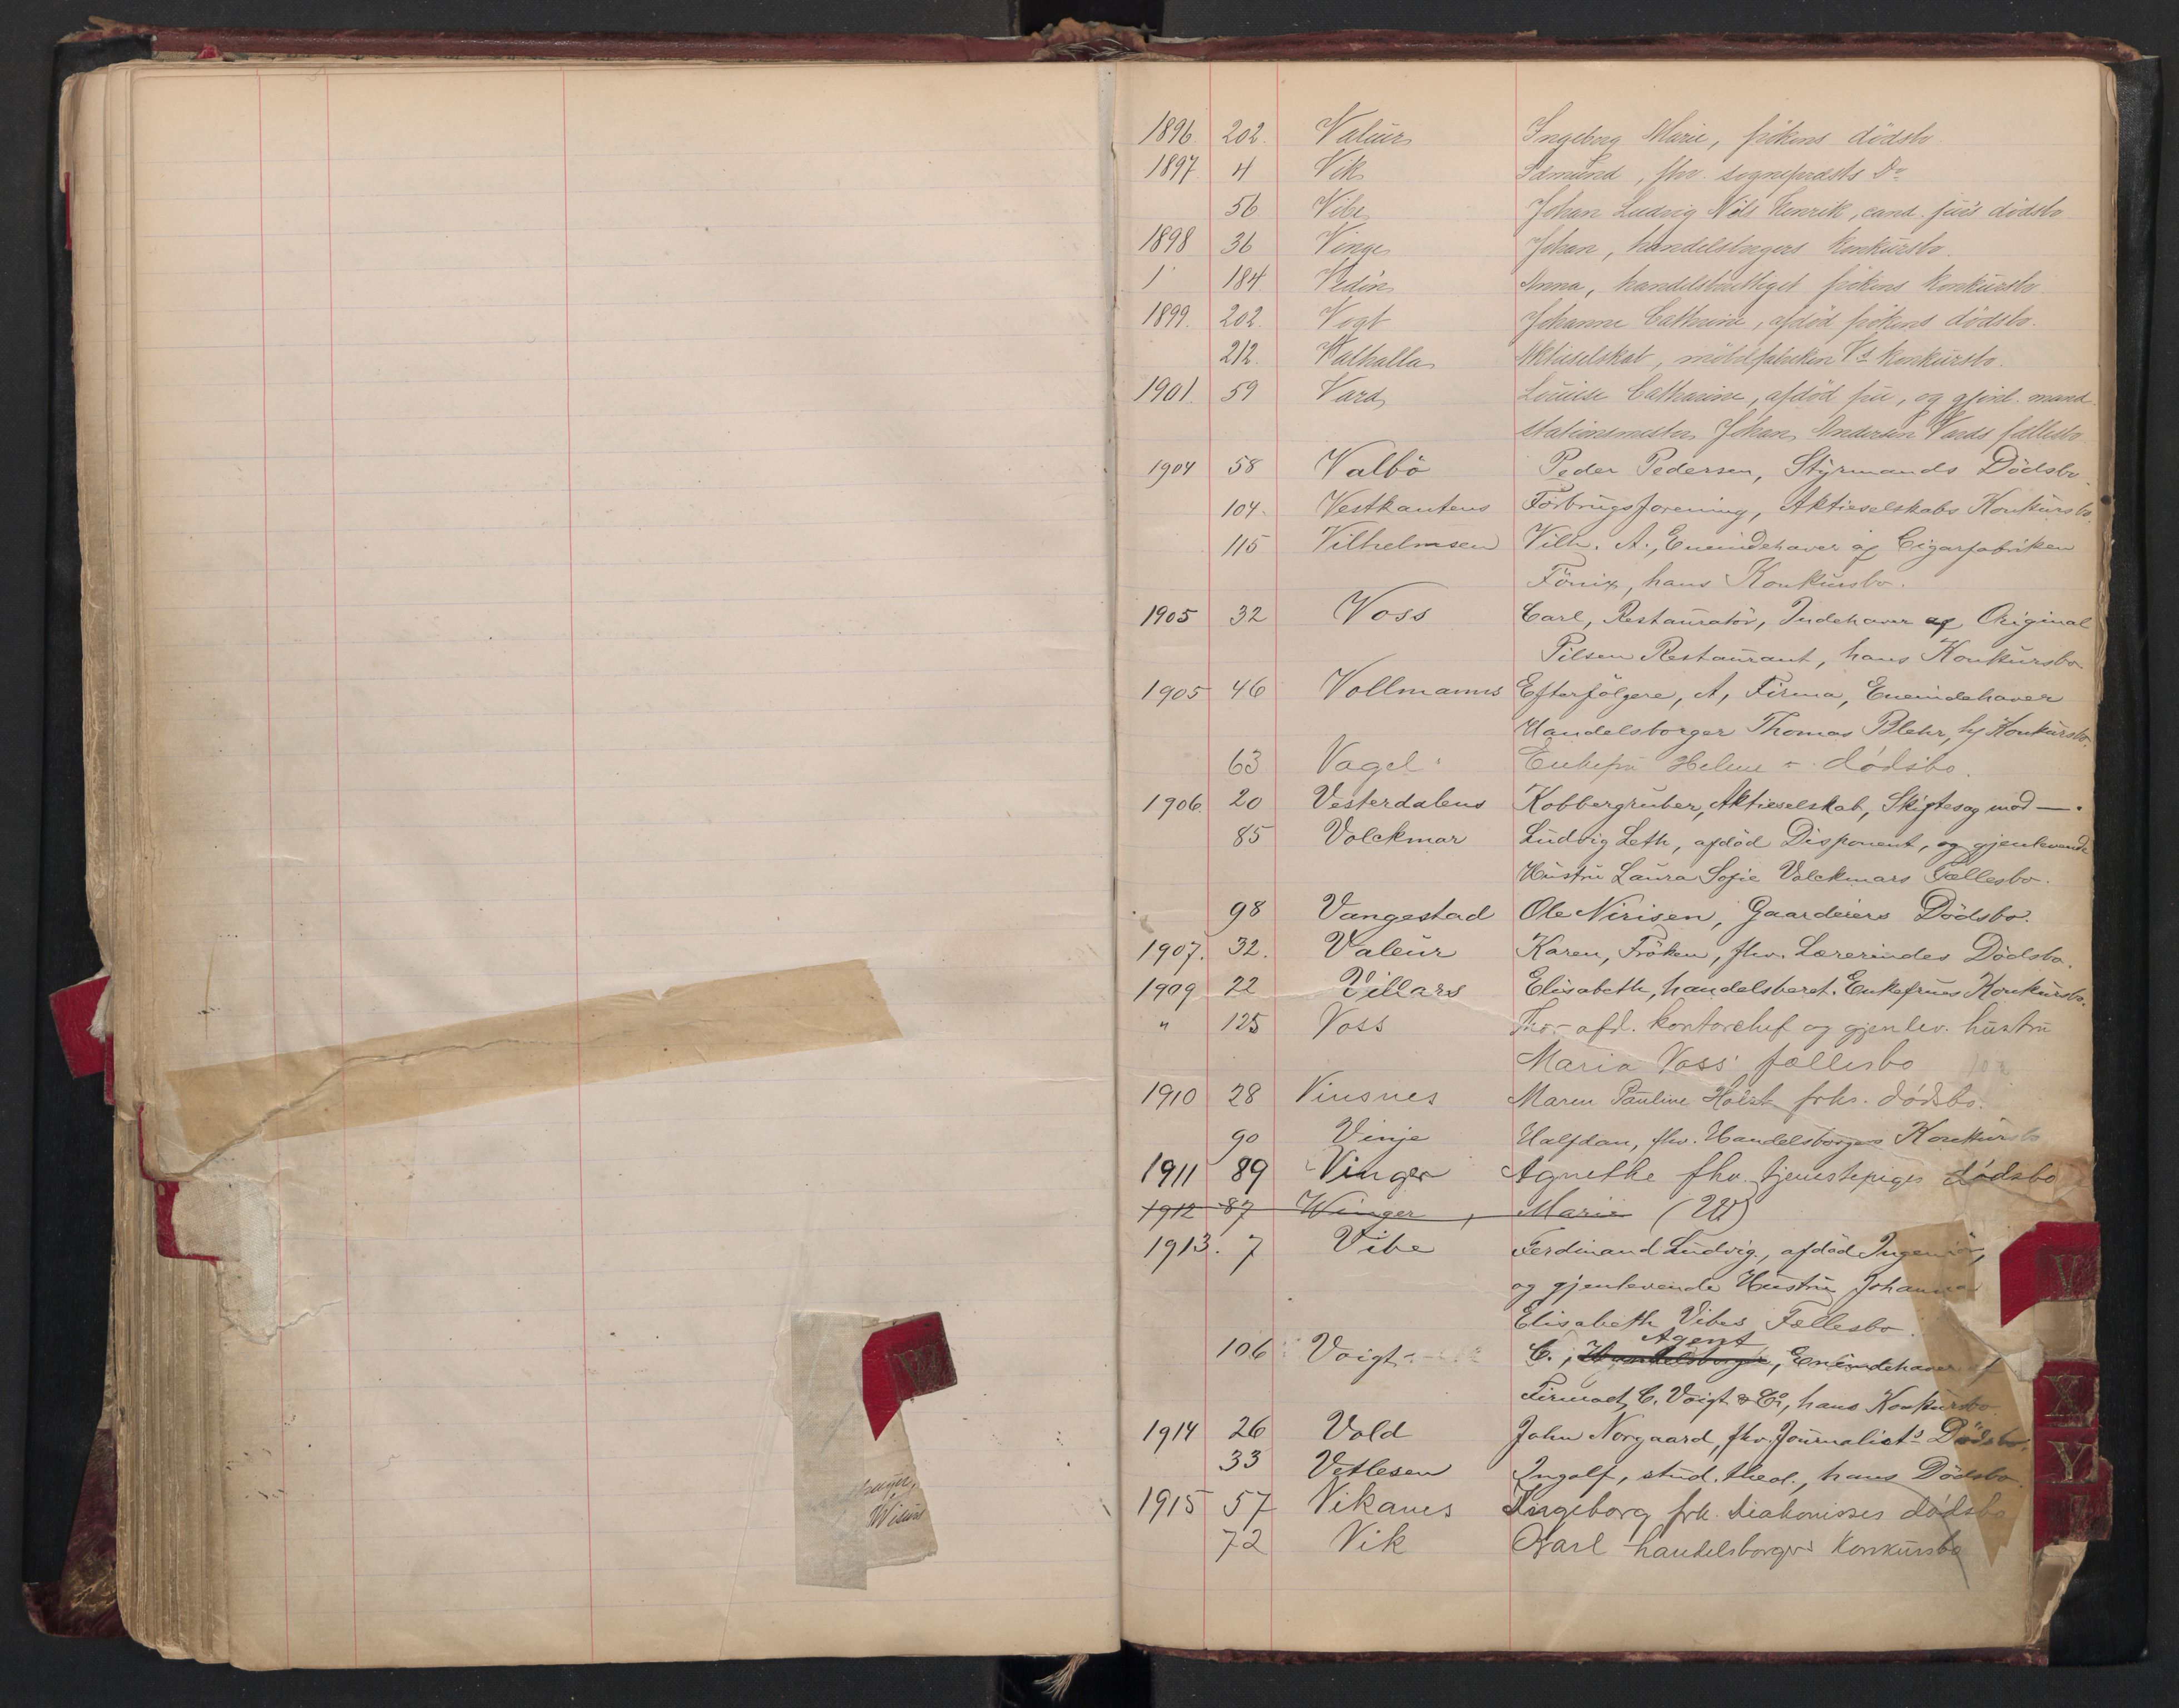 1896. 202. Valeur Ingeborg Marie, frökens dödsbo
1897 4 Vik Edmund, fhv. sogneprests Do
56 Vibe Johan Ludvig Nils Henrik, cand. juris dödsbo
1898 36 Vinge Johan, handelsborgers konkursbo.
184 Vedön Anna, handelsberettiget frökens konkursbo
1899. 202. Vogt Johanne Cathrine, afdöd frökens dödsbo.
212. Valhalla Aktieselskab, möbelfabriken Vs konkursbo.
1901. 59 Vard Louise Catharine, afdöd fru, og gjenl. mand
stationsmester Johan Andersen Vards fællesbo
1904 58 Valbö Peder Pedersen, Styrmands Dödsbo.
104. Vestkantens Forbrugsforening, Aktieselskabs Konkursbo.
115 Vilhelmsen Vilh. A., Eneindehaver af Cigarfabriken
Fönix, hans Konkursbo.
1905 32 Voss Carl, Restauratör, Indehaver af Original
Pilsen Restaurant, hans Konkursbo.
1905 46 Vollmanns Efterfölgere, A, Firma, Eneindehaver
Handelsborger Thomas Blehr, hs Konkursbo.
63 Vagel Enkefru Helene dödsbo.
1906. 20 Vesterdalens Kobbergruber, Aktieselskab, Skiftesag mod —.
85 Volckmar Ludvig Leth, afdöd Disponent, og gjenlevende
Hustru Laura Sofie Volckmars Fællesbo.
98 Vangestad Ole Nirisen, Gaardeiers Dödsbo.
1907. 32. Valeur Karen, Fröken, fhv. Lærerindes Dödsbo.
1909 22 Villars Elisabeth, handelsberet. Enkefrues Konkursbo.
" 125 Voss Thor afd. kontorchef og gjenlev. hustru
Maria Voss' fællesbo
1910 28 Vinsnes Maren Pauline Holst frks. dödsbo.
90 Vinje Halfdan, fhv. Handelsborgers Konkursbo
1911 89 Vinger Agnethe fhv. tjenestepiges dödsbo
1912 87 Winger, Marie (W)
1913. 7 Vibe Ferdinand Ludvig, afdöd Ingeniör,
og gjenlevende Hustru Johanna
Elisabeth Vibes Fællesbo.
Agent
106 Voigt C., Handelsborger, Eneindehaver af
Firmaet C. Voigt & Co, hans Konkursbo.
1914 26 Vold John Norgaard, fhv. Journalists Dödsbo.
33 Vetlesen Ingolf, stud. theol., hans Dödsbo.
1915 57 Vikanes Ingeborg frk. diakonisses dödsbo
72 Vik Karl handelsborgers konkursbo
V
X
Y
W